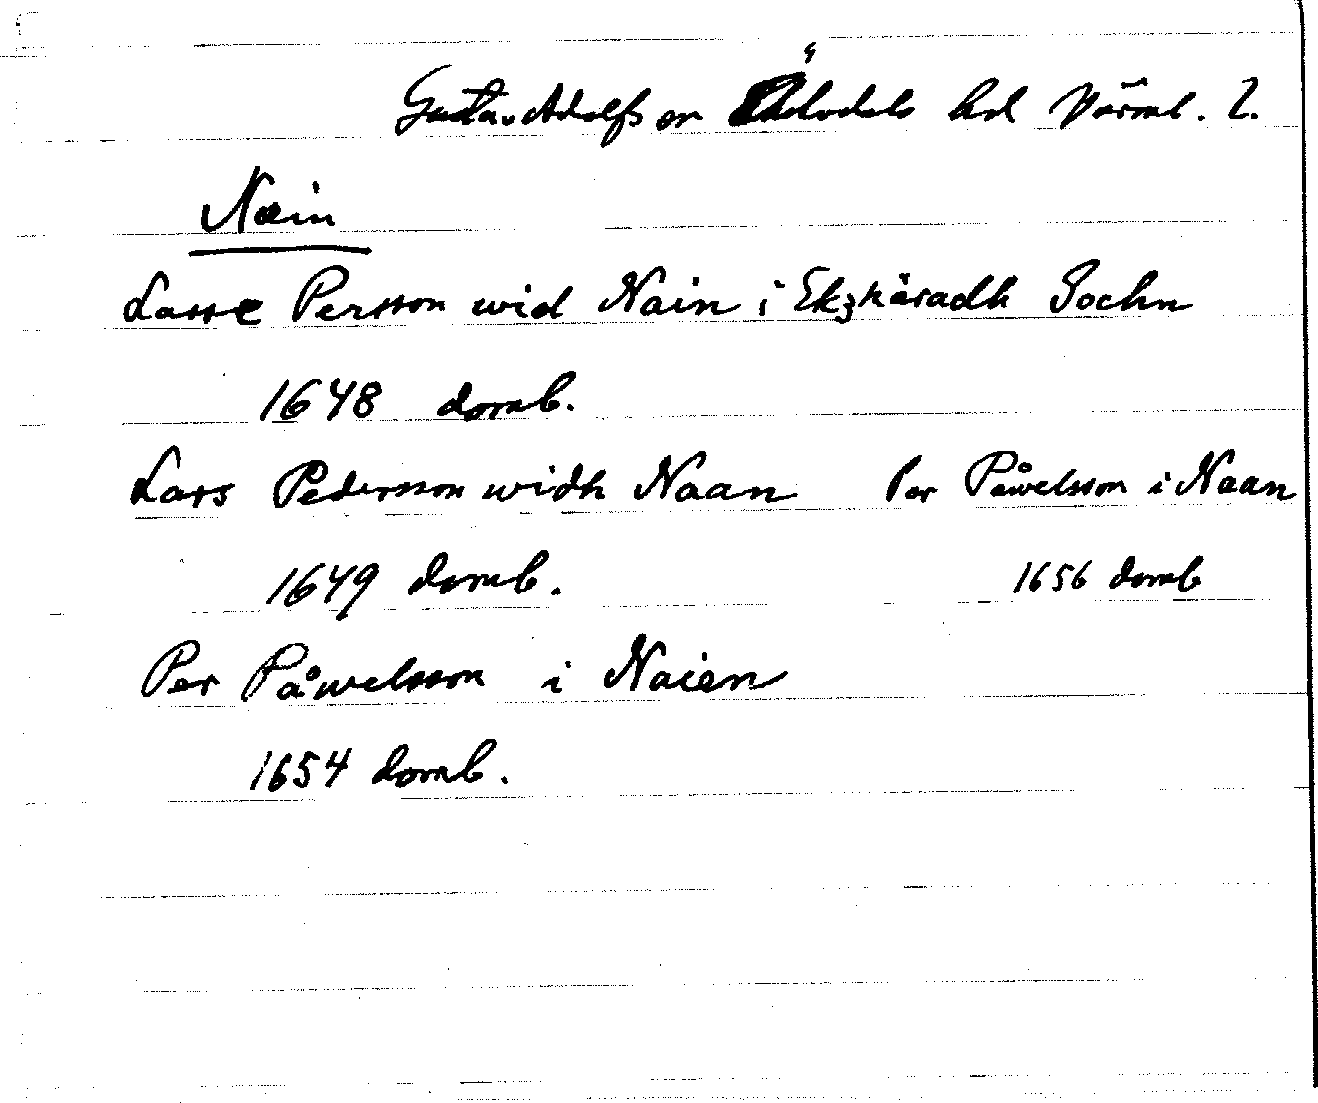 Gustav Adolfs sn Älvdals hd Värml. l.
Nain
Lasse Persson wid Nain i Ekzhäradh Sochn
1648 domb.
Lars Pedersson widh Naan Per Påwelsson i Naan
1649 domb. 1656 domb
Per Påwelsson i Naien
1654 domb.